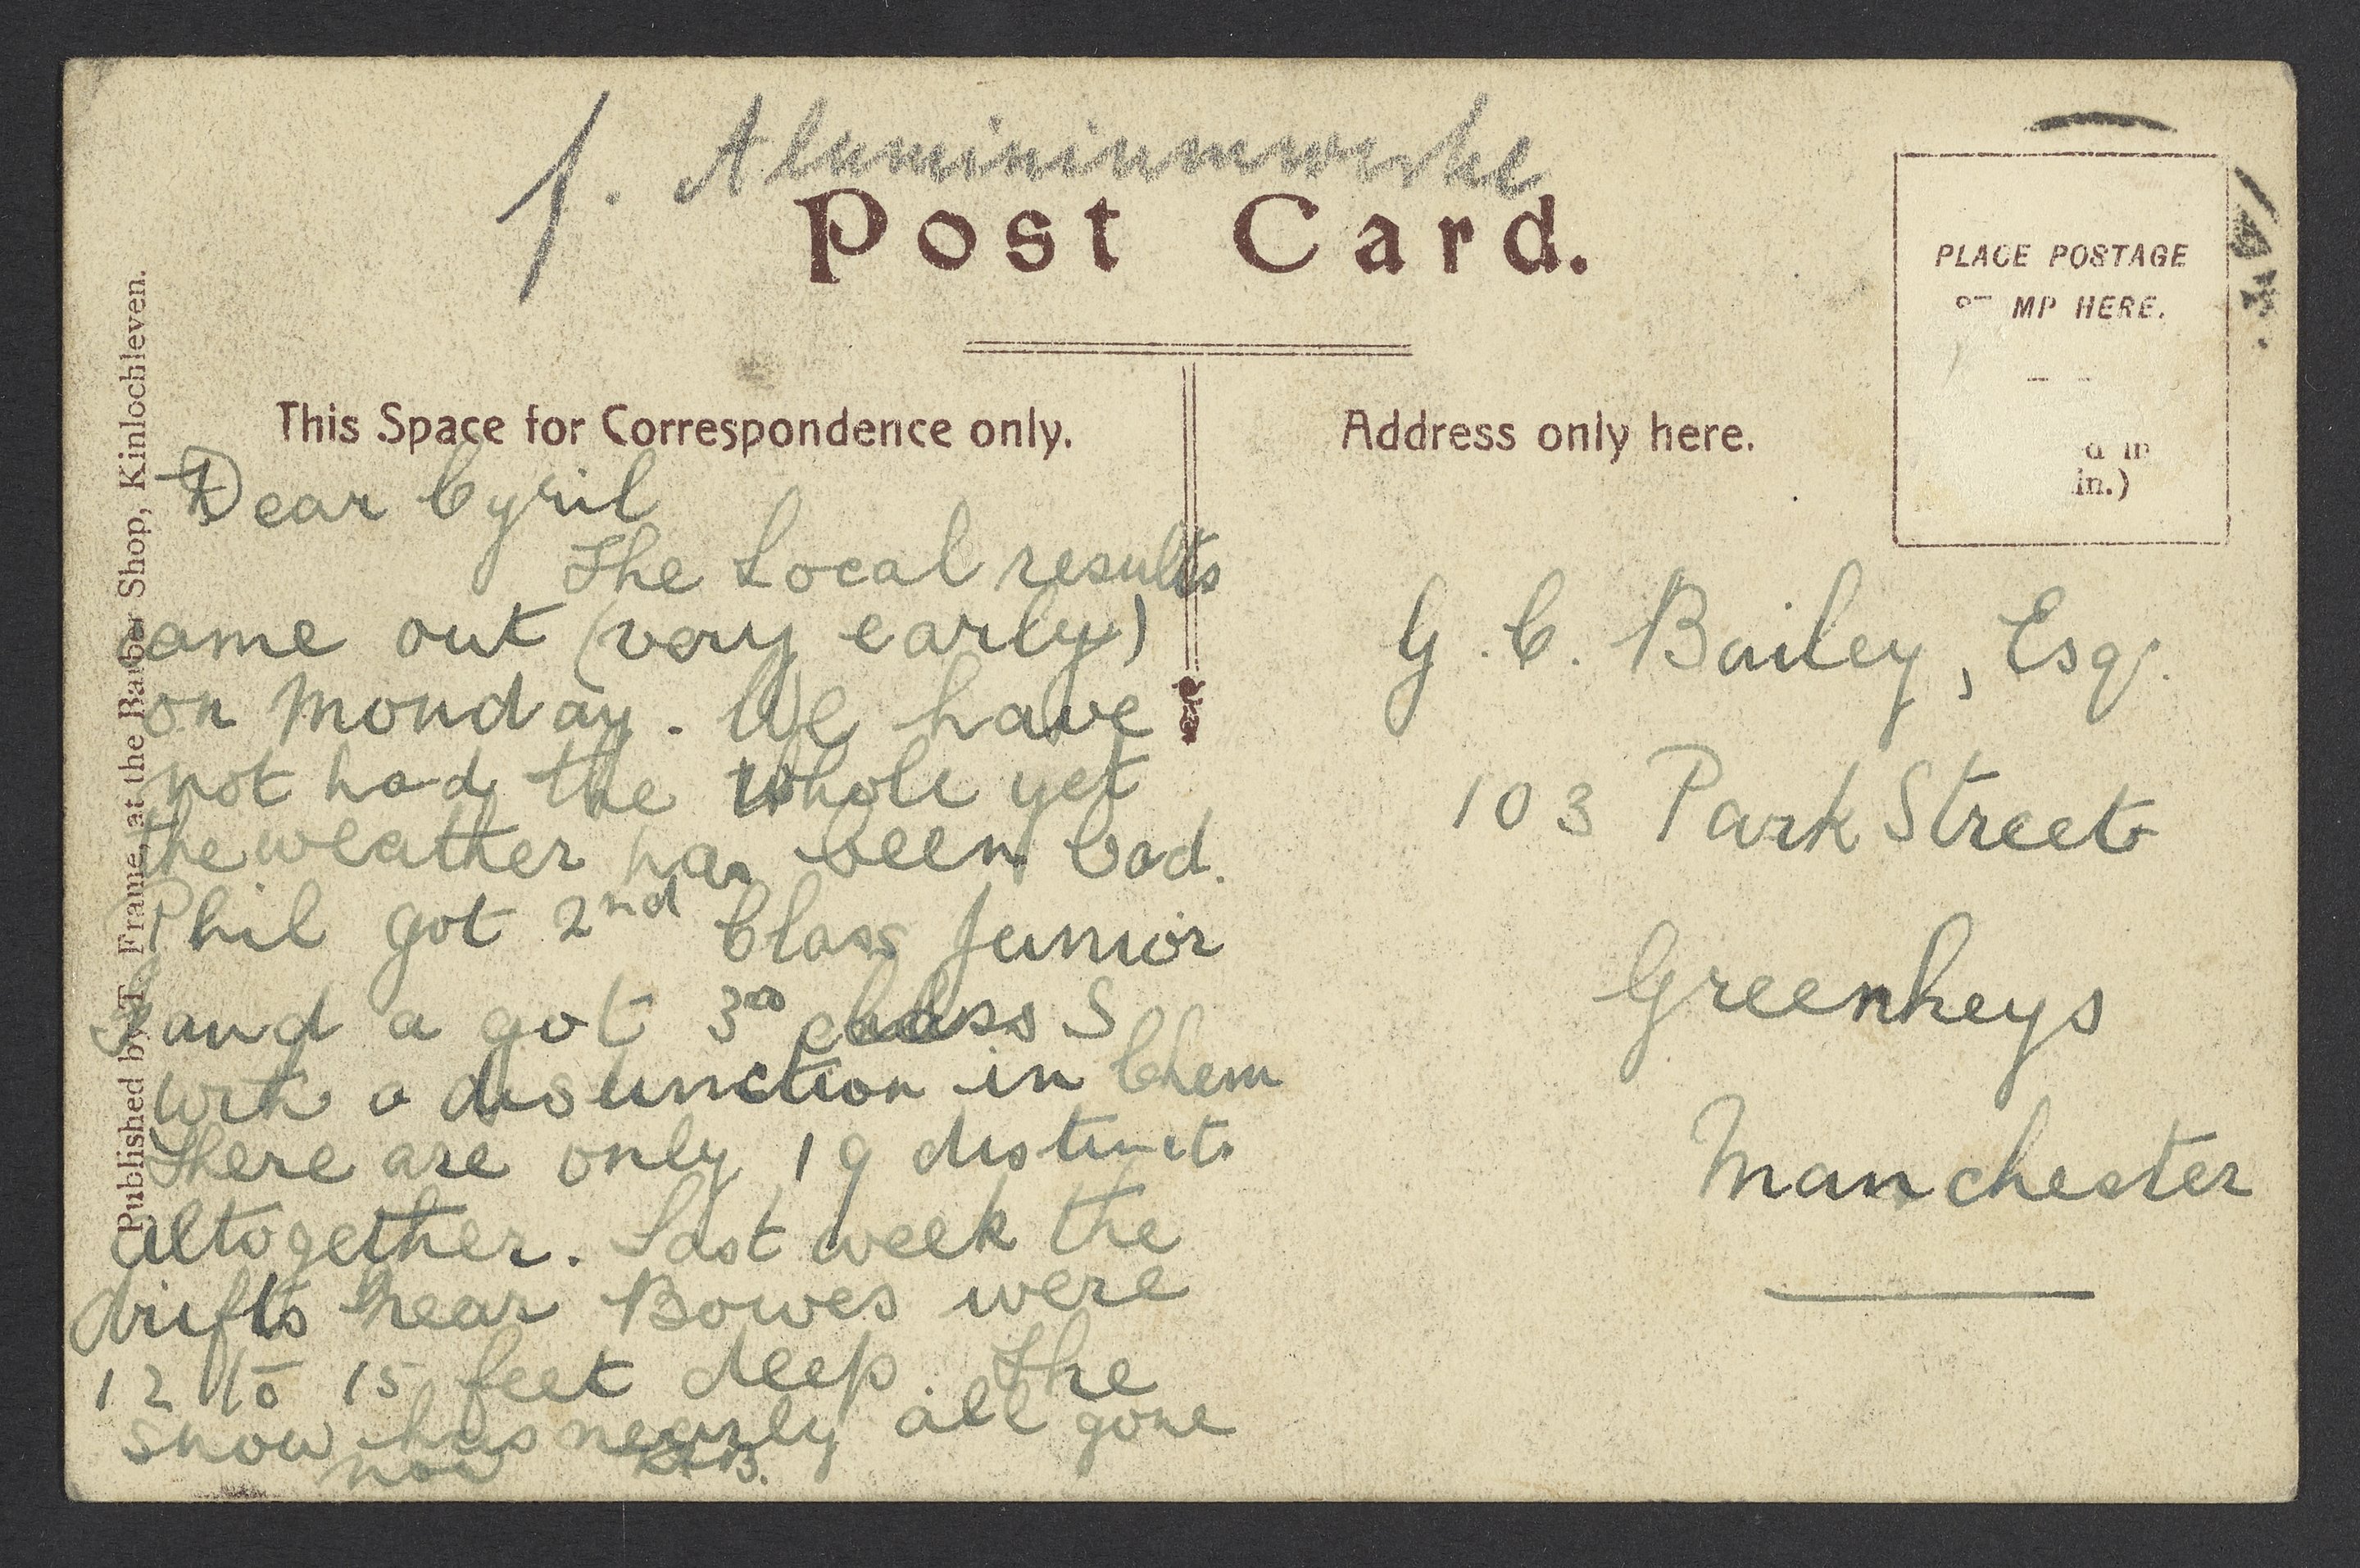 f. Aluminiumwerke
Post Card.
PLACE POSTAGE
MP HERE.
in.)
This Space for Correspondence only.
Address only here.
Published by T. Frame, at the Barber Shop, Kinlochleven.
Dear Cyril
The Local results
came out (very early)
on Monday. We have
not had the whole yet
the weather has been bad.
Phil got 2nd Class Junior
and a got 3rd class S
with a distinction in Chem
There are only 19 distincts
altogether. Last week the
drifts near Bowes were
12 to 15 feet deep. The
snow has nearly all gone
now
G. C. Bailey, Esq.
103 Park Street
Greenheys
Manchester